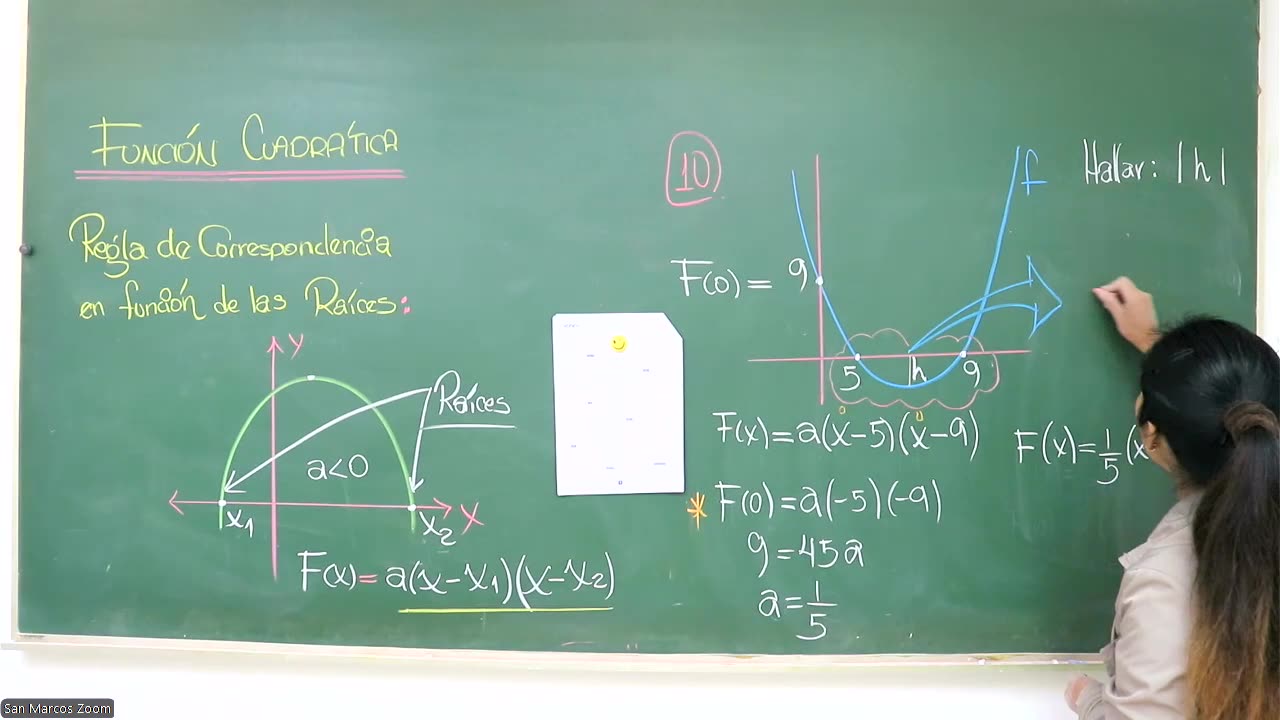 FUNCIÓN CUADRÁTICA
Regla de Correspondencia
en función de las Raíces:
Y
Raíces
a<0
X₁
X₂
X
F(x)=a(x-x₁)(x-x₂)
10
f
Hallar: |h|
F(0)= 9
5
h
9
F(x)=a(x-5)(x-9)
F(x)=1/5(x
* F(0)=a(-5)(-9)
9=45a
a=1/5
San Marcos Zoom